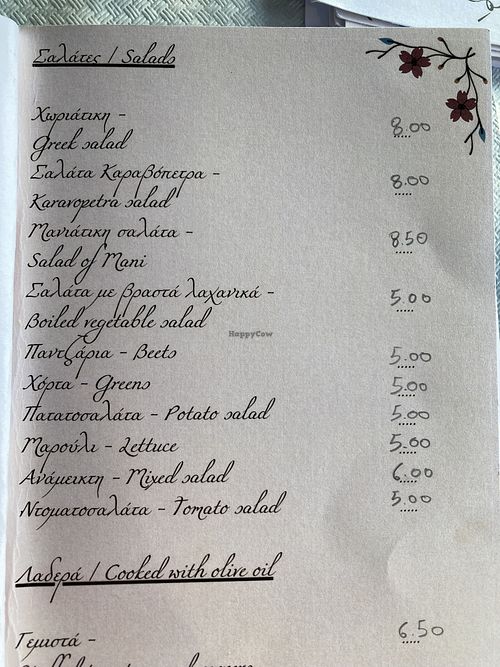 Σαλάτες / Salads
Χωριάτικη -
Greek salad 8.00
Σαλάτα Καραβόπετρα - 8.00
Karavopetra salad
Μανιάτικη σαλάτα - 8.50
Salad of Mani
Σαλάτα με βραστά λαχανικά - 5.00
Boiled vegetable salad
HappyCow
Παντζάρια - Beets 5.00
Χόρτα - Greens 5.00
Πατατοσαλάτα - Potato salad 5.00
Μαρούλι - Lettuce 5.00
Ανάμεικτη - Mixed salad 6.00
Ντοματοσαλάτα - Tomato salad 5.00
Λαδερά / Cooked with olive oil
Γεμιστά - 6.50